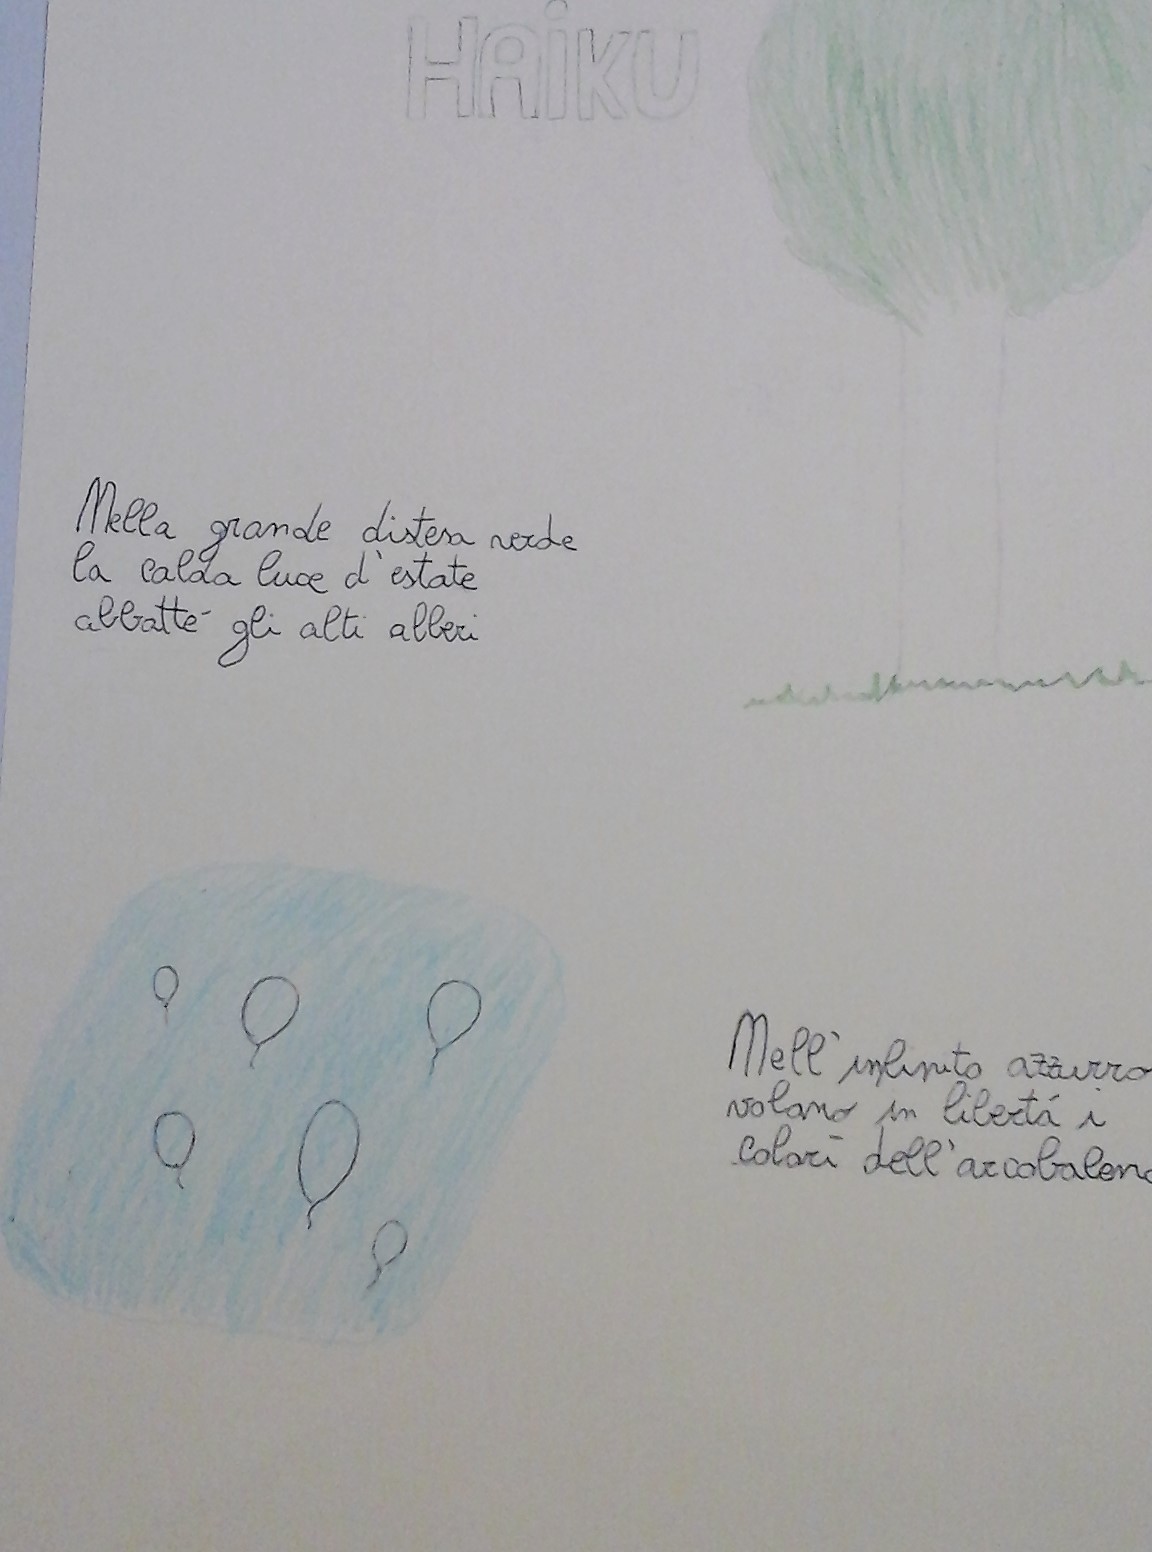 HAiKU
Nella grande distesa verde
la calda luce d'estate
abbatté gli alti alberi
Nell'infinito azzurro
volano in libertá i
colori dell'arcobaleno